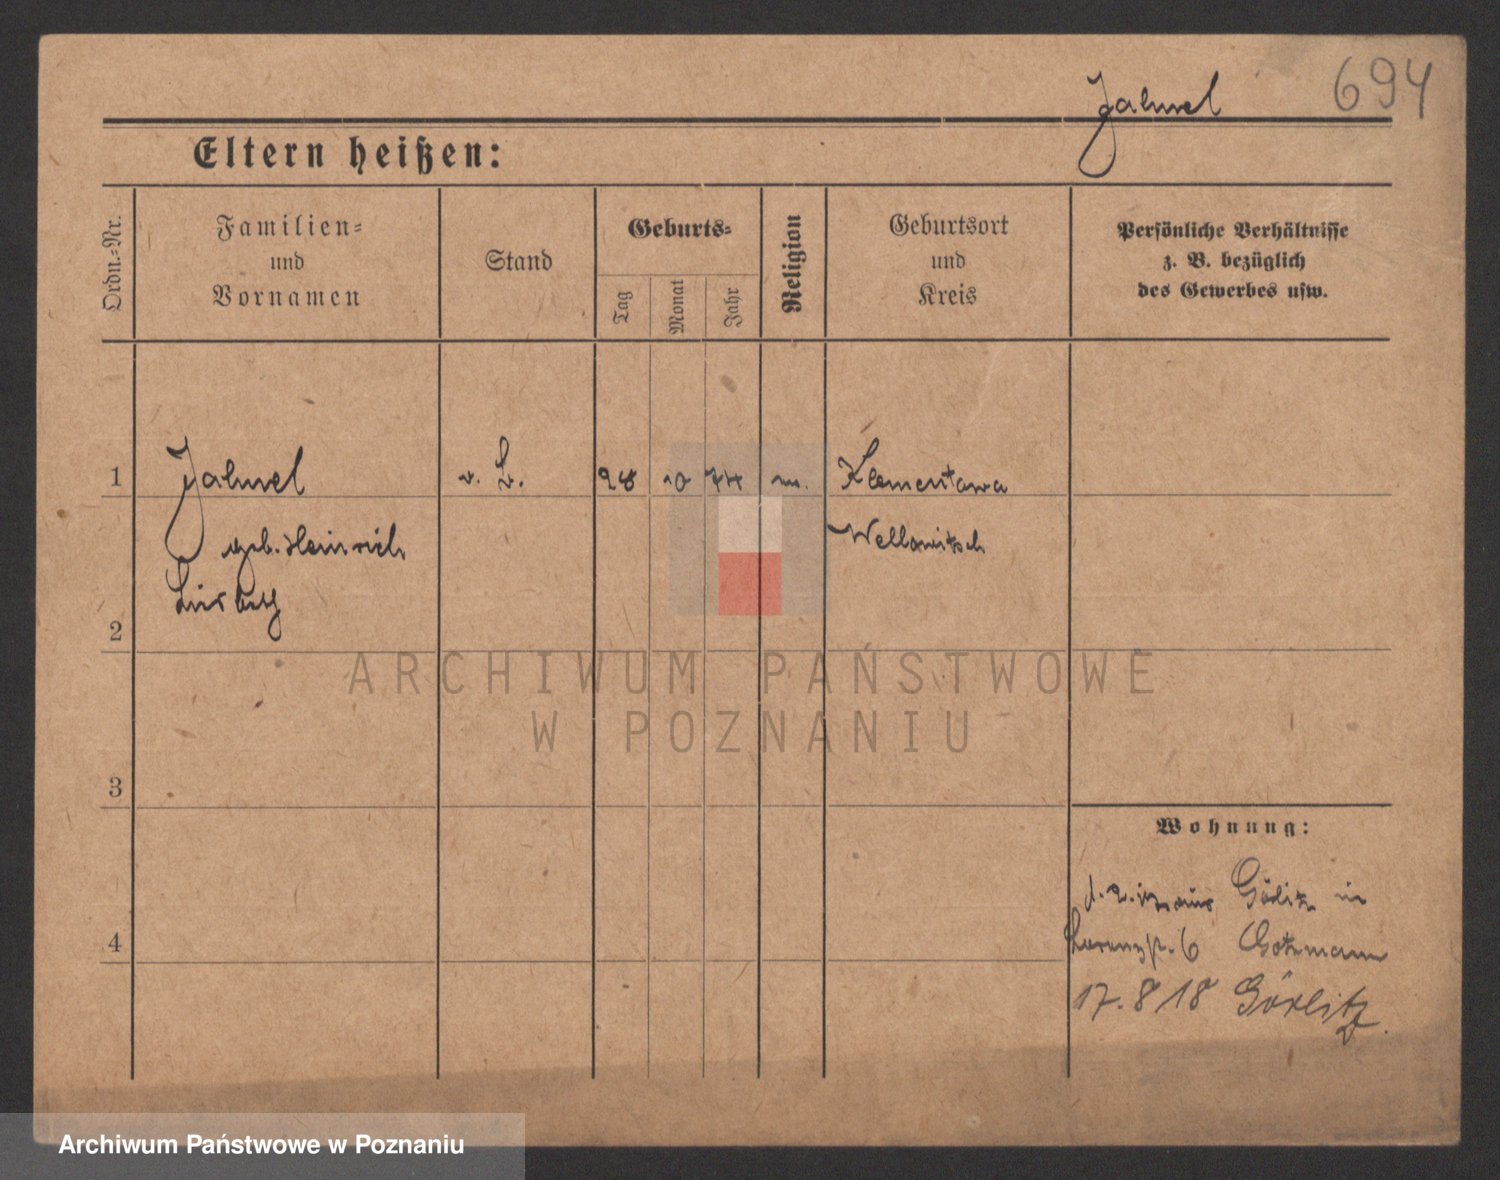 694
Jahnel
Eltern heißen:
Ordn.-Nr.
Familien-
und
Vornamen
Stand
Geburts-
Tag
Monat
Jahr
Religion
Geburtsort
und
Kreis
Persönliche Verhältnisse
z. B. bezüglich
des Gewerbes usw.
1
Jahnel
28
10
Klementowa
geb. Heinrich
2
3
Wohnung:
aus Görlitz in
4
6
17. 8 18 Görlitz.
ARCHIWUM PAŃSTWOWE
W POZNANIU
Archiwum Państwowe w Poznaniu